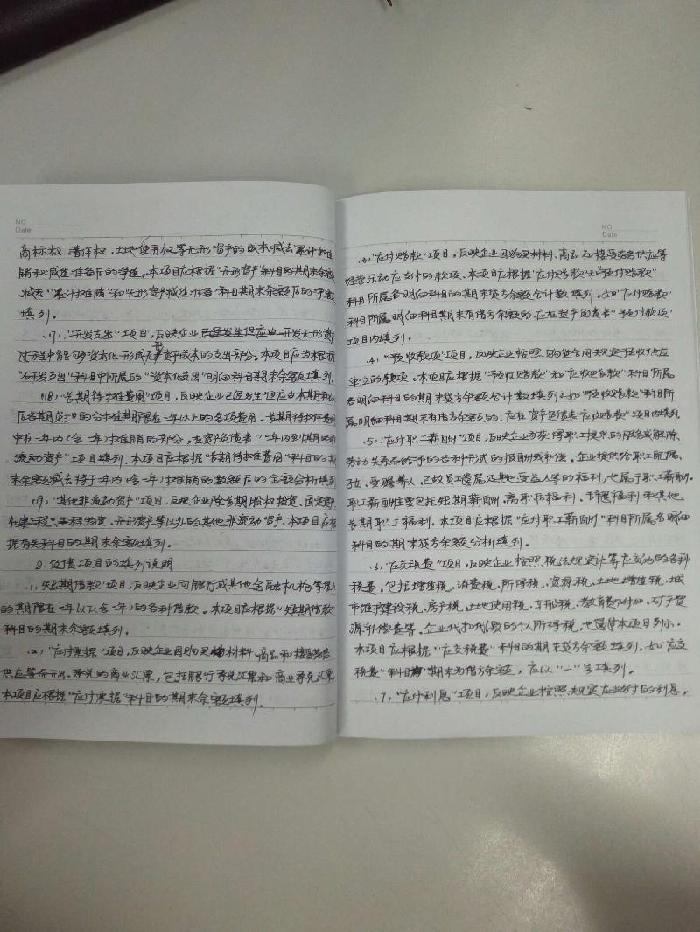 NO
Date
商标权、著作权、土地使用权等无形资产的成本减去累计摊
销和减值准备后的净值。本项目应根据"无形资产"科目的期末余额
减去"累计摊销"和"无形资产减值准备"科目期末余额后的净额
填列。
(17)"开发支出"项目，反映企业开发无形资产
过程中能够资本化形成无形资产成本的支出部分。本项目应当根据
"研发支出"科目中所属的"资本化支出"明细科目期末余额填列。
(18)"长期待摊费用"项目，反映企业已经发生但应由本期和以
后各期负担的分摊期限在一年以上的各项费用。长期待摊费用
中在一年内（含一年）摊销的部分，在资产负债表"一年内到期的非
流动资产"项目填列。本项目应根据"长期待摊费用"科目的期
末余额减去将于一年内（含一年）摊销的数额后的金额分析填列。
(19)"其他非流动资产"项目，反映企业除长期股权投资、固定资产、
在建工程、工程物资、无形资产等以外的其他非流动资产。本项目应根
据有关科目的期末余额填列。
2.负债项目的填列说明
(1)"短期借款"项目，反映企业向银行或其他金融机构等借入
的期限在一年以下（含一年）的各种借款。本项目应根据"短期借款"
科目的期末余额填列。
(2)"应付票据"项目，反映企业因购买材料、商品和接受劳务
供应等而开出、承兑的商业汇票，包括银行承兑汇票和商业承兑汇票。
本项目应根据"应付票据"科目的期末余额填列。
NO
Date
(3)"应付账款"项目，反映企业因购买材料、商品和接受劳务供应等
经营活动应支付的款项。本项目应根据"应付账款"和"预付账款"
科目所属各明细科目的期末贷方余额合计数填列；如"应付账款"
科目所属明细科目期末有借方余额的，应在资产负债表"预付款项"
项目内填列。
(4)"预收款项"项目，反映企业按照购货合同规定预收供应
单位的款项。本项目应根据"预收账款"和"应收账款"科目所属
各明细科目的期末贷方余额合计数填列；如"预收账款"科目所
属明细科目期末有借方余额的，应在资产负债表"应收账款"项目内填列
(5)"应付职工薪酬"项目，反映企业为获得职工提供的服务或解除
劳动关系而给予的各种形式的报酬或补偿。企业提供给职工配偶、
子女、受赡养人、已故员工遗属及其他受益人等的福利，也属于职工薪酬。
职工薪酬主要包括短期薪酬、离职后福利、辞退福利和其他
长期职工福利。本项目应根据"应付职工薪酬"科目所属各明细
科目的期末贷方余额分析填列。
(6)"应交税费"项目，反映企业按照税法规定计算应交纳的各种
税费，包括增值税、消费税、所得税、资源税、土地增值税、城
市维护建设税、房产税、土地使用税、车船税、教育费附加、矿产资
源补偿费等。企业代扣代缴的个人所得税，也通过本项目列示。
本项目应根据"应交税费"科目的期末贷方余额填列；如"应交
税费"科目期末为借方余额，应以"一"号填列。
(7)"应付利息"项目，反映企业按照规定应当支付的利息，